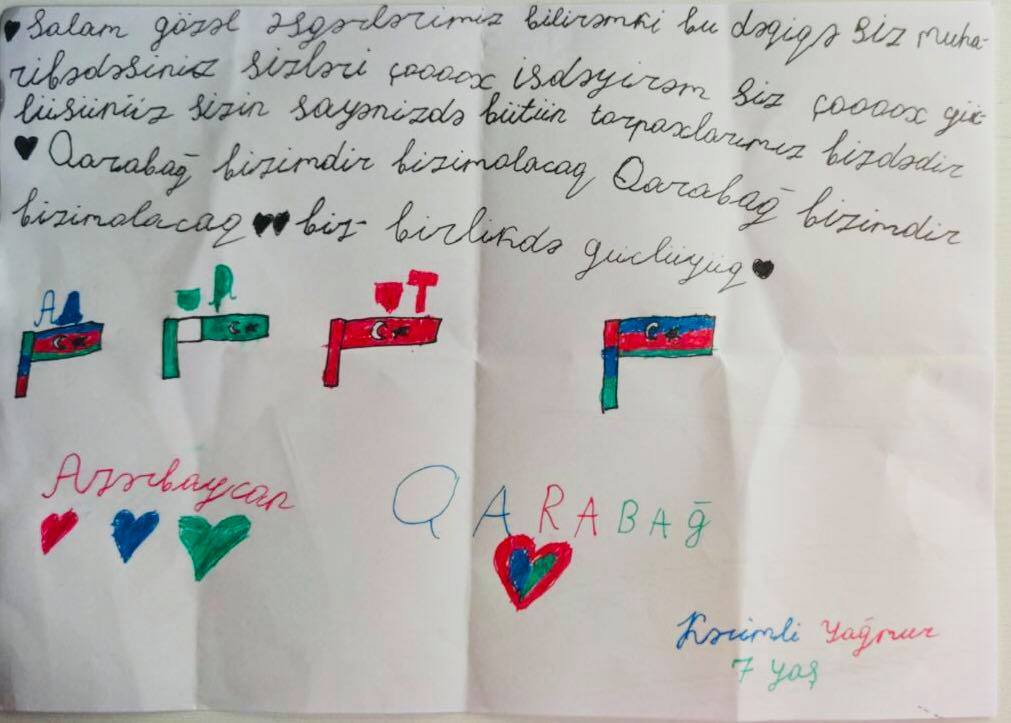 Salam gözəl əsgərlərimiz bilirəmki bu dəqiqə siz muha-
ribədəsiniz sizləri çooooox isdəyirəm siz çooooox güc-
lüsünüz sizin sayənizdə bütün torpaxlarımız bizdədir
Qarabağ bizimdir bizimolacaq Qarabağ bizimdir
bizimolacaq biz- birlikdə güclüyüq
A P T
Azərbaycan
QARABAĞ
Kərimli Yağmur
7 yaş